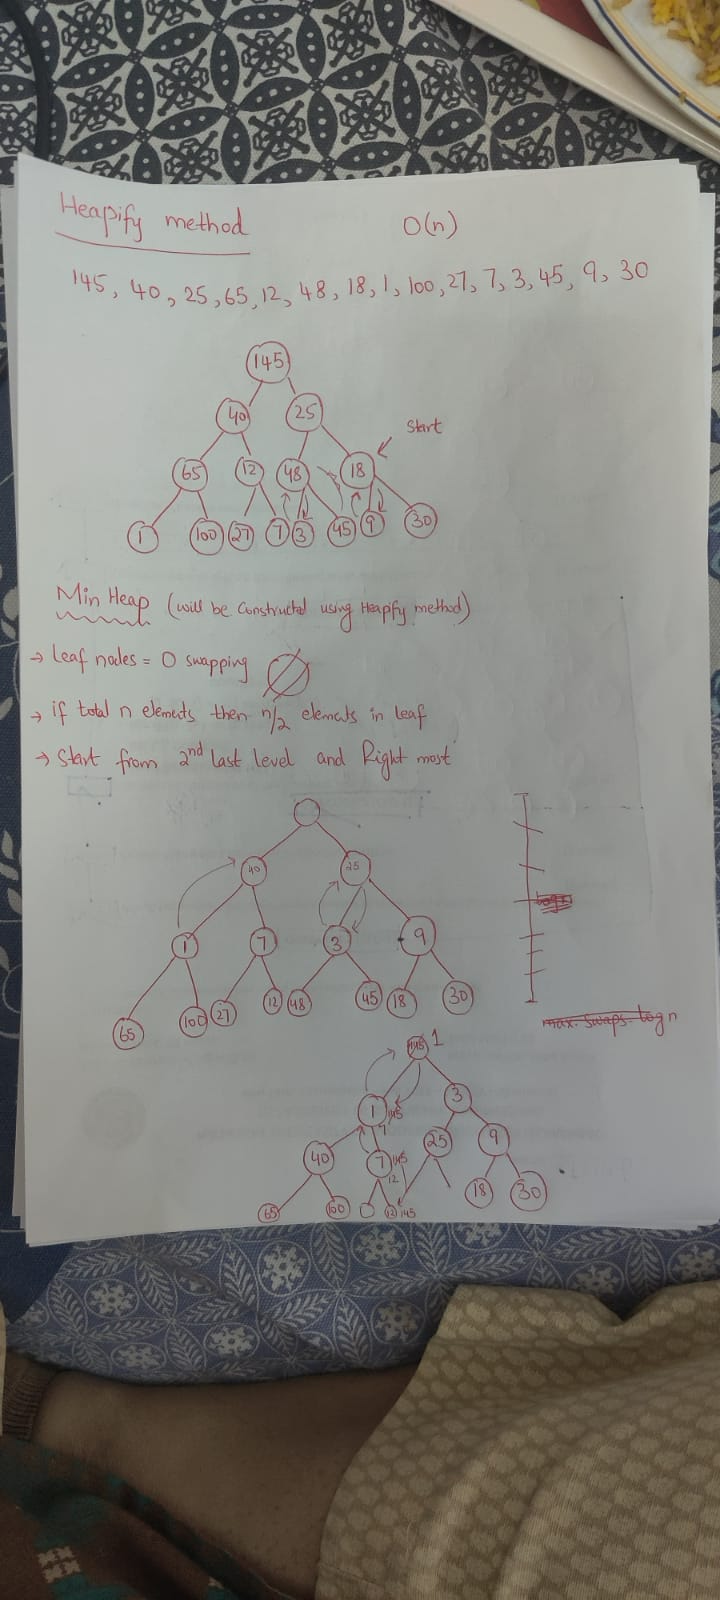 Heapify method O(n)
145, 40, 25, 65, 12, 48, 18, 1, 100, 27, 7, 3, 45, 9, 30
145
40 25
Start
65 12 48 18
1 100 27 7 3 45 9 30
Min Heap (will be constructed using Heapify method)
→ Leaf nodes = 0 swapping
→ if total n elements then n/2 elements in leaf
→ Start from 2nd last level and Right most
40 25
1 7 3 9
65 100 27 12 48 45 18 30
max. swaps. log n
145 1
1 145 3
7
40 7 145 25 9
12
65 100 12 145 18 30